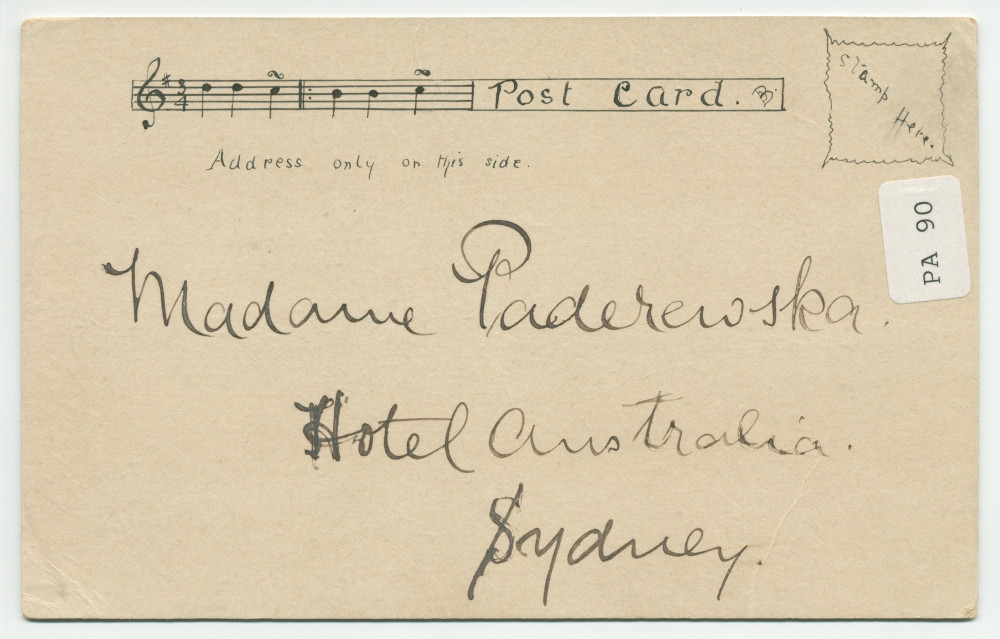 3/4 Post Card.
Stamp
Here.
Address only on this side.
PA 90
Madame Paderewska.
Hotel Australia.
Sydney.